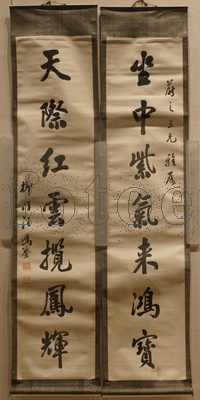 坐中紫氣来鴻寶
蔚之三兄雅屬
天際紅雲攬鳳輝